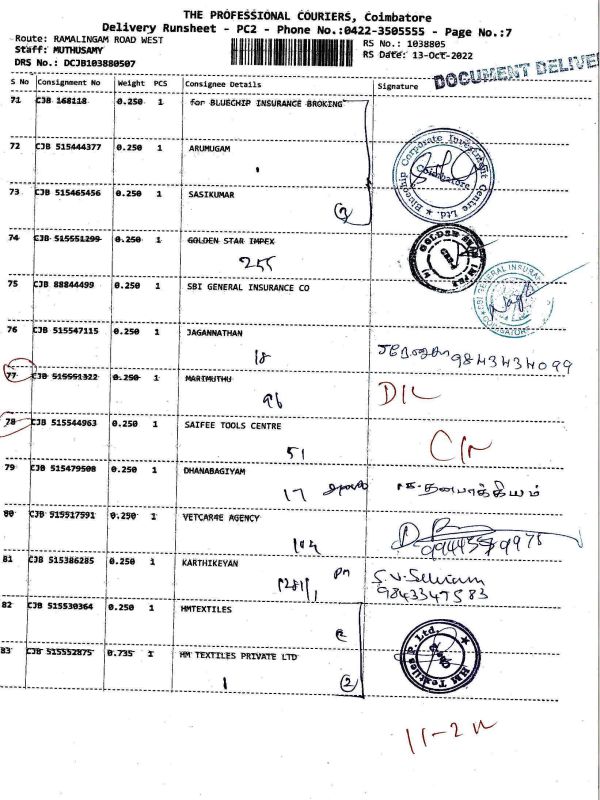 THE PROFESSIONAL COURIERS, Coimbatore
Delivery Runsheet - PC2 - Phone No.:0422-3505555 - Page No.:7
Route: RAMALINGAM ROAD WEST
Staff: MUTHUSAMY
DRS No.: DCJB103880507
RS No.: 1038805
RS Date: 13-Oct-2022
DOCUMENT DELIVE
S No Consignment No Weight PCS Consignee Details Signature
71 CJB 168118 0.250 1 for BLUECHIP INSURANCE BROKING
72 CJB 515444377 0.250 1 ARUMUGAM
Bluechip Corporate Investment Centre Ltd.
Coimbatore
73 CJB 515465456 0.250 1 SASIKUMAR
3
74 CJB 515551299 0.250 1 GOLDEN STAR IMPEX
255
GOLDEN STAR IMPEX
75 CJB 88844499 0.250 1 SBI GENERAL INSURANCE CO
SBI GENERAL INSURAN
76 CJB 515547115 0.250 1 JAGANNATHAN
18
9843434099
77 CJB 515551322 0.250 1 MARIMUTHU
96
D/L
78 CJB 515544963 0.250 1 SAIFEE TOOLS CENTRE
51
79 CJB 515479508 0.250 1 DHANABAGIYAM
17
தனபாக்கியம்
80 CJB 515517591 0.250 1 VETCAR4E AGENCY
104
81 CJB 515386285 0.250 1 KARTHIKEYAN
S.V. Selvam
9843347583
82 CJB 515530364 0.250 1 HMTEXTILES
83 CJB 515552875 0.735 1 HM TEXTILES PRIVATE LTD
1
2
HM Textiles P. Ltd.